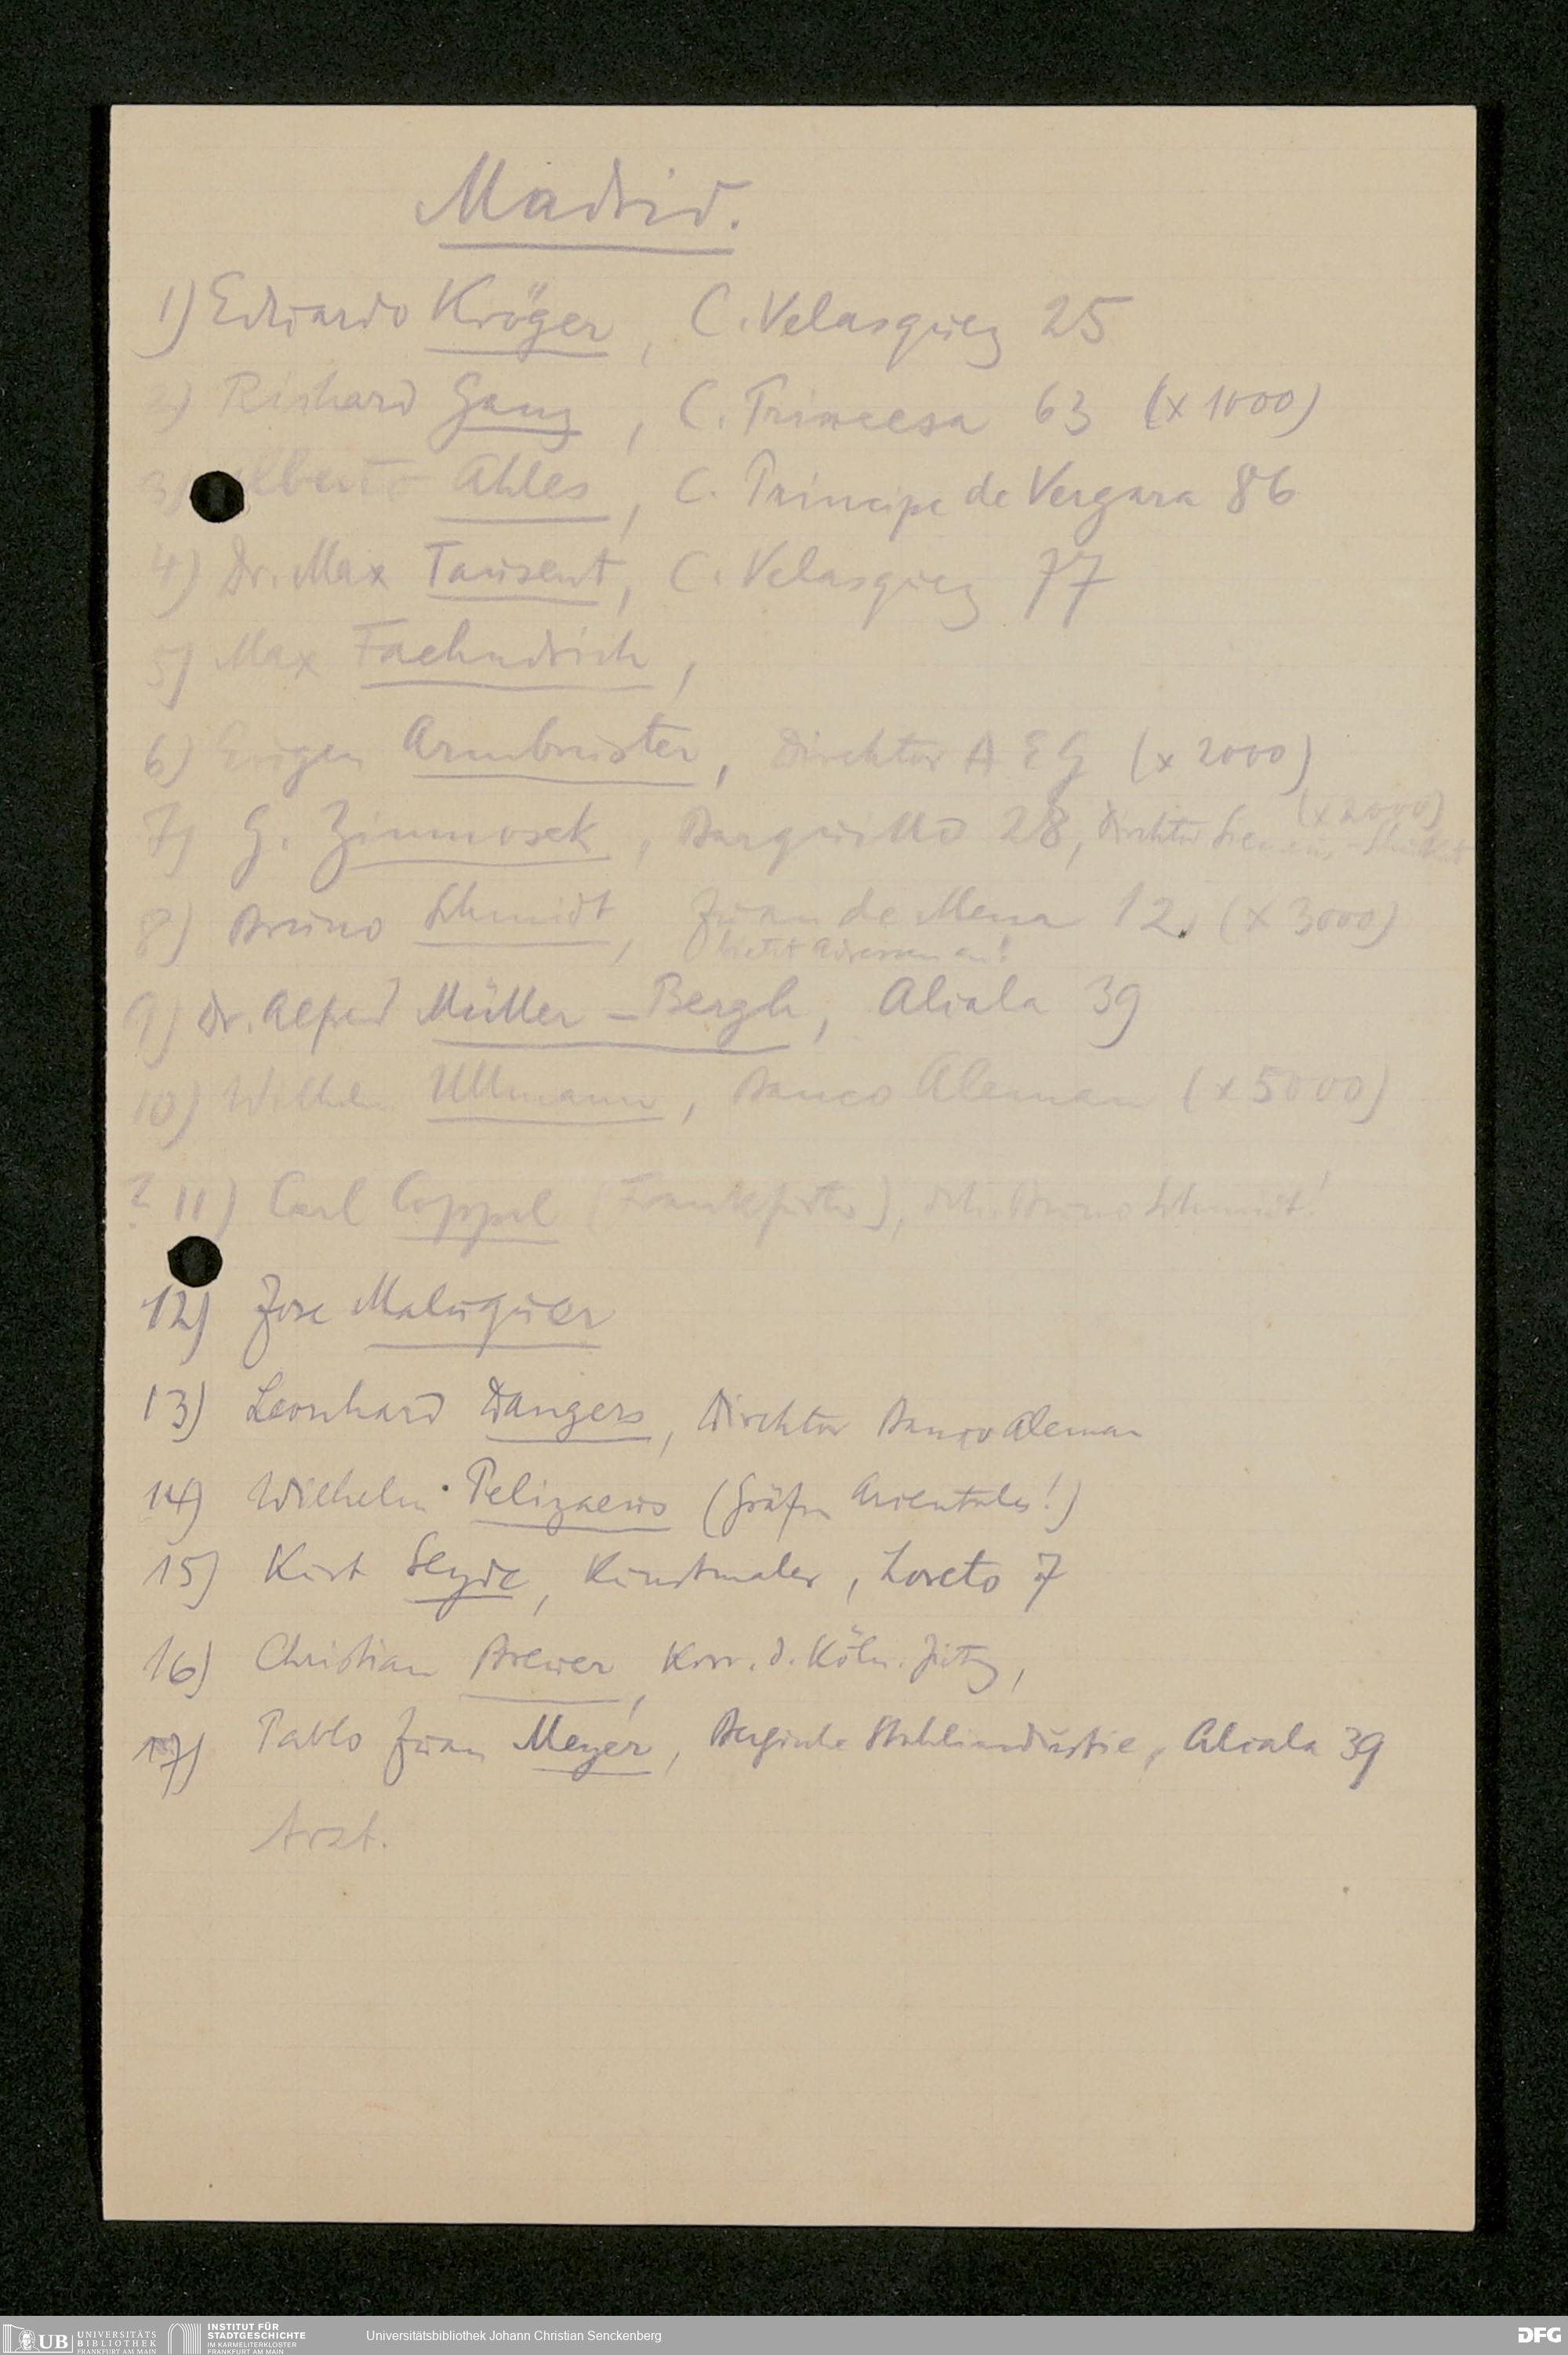 Madrid.
1) Eduardo Kröger, C. Velasquez 25
2) Richard Ganz, C. Princesa 63 (x 1000)
3) Alberto Ahles, C. Principe de Vergara 86
4) Dr. Max Tausent, C. Velasquez 77
5) Max Faehndrich,
6) Eugen Armbruster, Direktor AEG (x 2000)
(x 2000)
7) G. Zimmosek, Barquillo 28, Direktor Siemens-Schuckert
8) Bruno Schmidt, Juan de Mena 12, (x 3000)
bietet Adressen an!!
9) Dr. Alfred Müller-Bergh, Alcala 39
10) Wilhelm Ullmann, Banco Aleman (x 5000)
? 11) Carl Coppel (Frankfurter), Bruno Schmidt!
12) Jose Maluquer
13) Leonhard Dangers, Direktor Banco Aleman
14) Wilhelm Pelizaeus (Gräfin!)
15) Kurt Leyde, Kunstmaler, Loreto 7
16) Christian Brewer, Korr. d. Köln. Zeitg,
17) Pablo Juan Meyer, Bergische Stahlindustrie, Alcala 39
Arzt.
UB UNIVERSITÄTS BIBLIOTHEK FRANKFURT AM MAIN
INSTITUT FÜR STADTGESCHICHTE IM KARMELITERKLOSTER FRANKFURT AM MAIN
Universitätsbibliothek Johann Christian Senckenberg
DFG